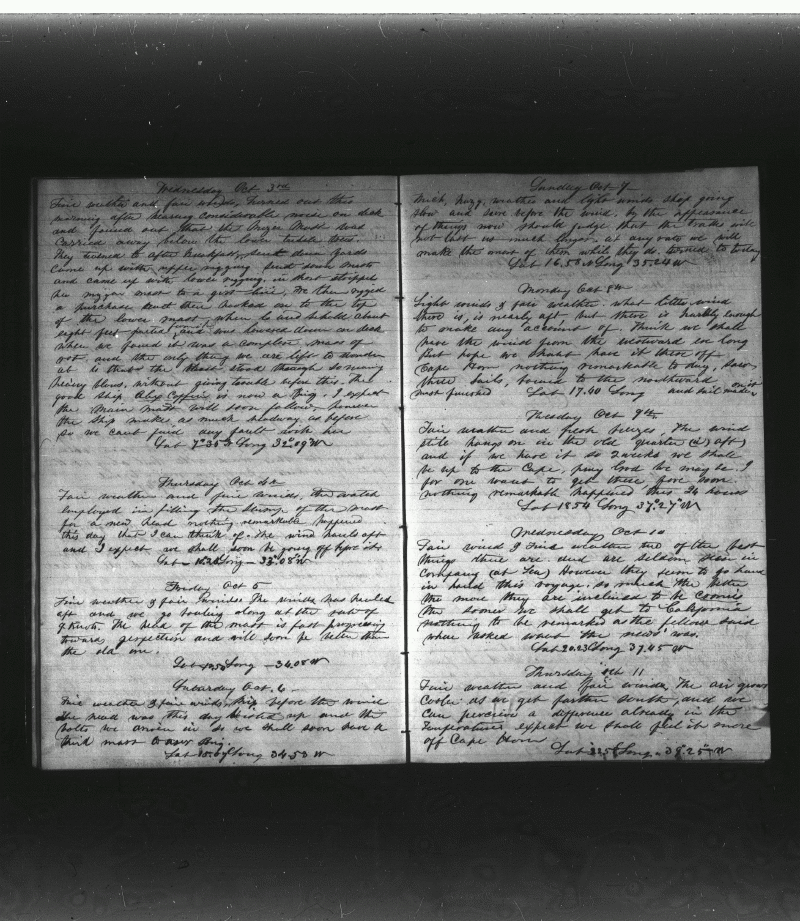 Wednesday Oct 3rd
Fine weather and fair winds, turned out this
morning after hearing considerable noise on deck
and found out that the Mizen Mast was
carried away below the lower
they turned to after breakfast, sent down yards
came up with upper rigging send down mast
and came up with lower rigging, in short stripped
her mizen mast to a girt line, We then rigged
a purchase and then hooked on to the top
of the lower mast, when lo and behold about
eight feet parted from it, and was lowered down on deck
when we found it was a complete mass of
rot, and the only thing we are left to wonder
at is that the Mast stood through so many
heavy blows, without giving trouble before this. The
good ship Alex Coffin is now a brig. I expect
the main mast will soon follow, however
the ship makes as much headway as before
so we cant find any fault with her
Lat 7°35 Long 32°09 W
Thursday Oct 4th
Fair weather and fine winds, the
employed in fitting the stump of the mast
for a new head nothing remarkable happened
this day that I can think of. The wind hauls aft
and I expect we shall soon be going off before it
Lat Long 33°08 W
Friday Oct 5
Fine weather & fair The wind has hauled
aft and we go bowling along at the rate of
9 Knots. The head of the mast is fast progressing
towards perfection and will soon be better than
the old one.
Lat Long 34.08 W
Saturday Oct. 6
Fine weather & fair winds, ship before the wind
the head was this day hoisted up and the
bolts we driven in so we shall soon have a
third mast to our brig.
Lat Long 34.53 W
Sunday Oct 7
Thick, hazy, weather and light winds ship going
slow and sure before the wind, by the appearance
of things now should judge that the trades will
not last us much longer. at any rate we will
make the most of them while they do. tonight to today
Lat 16.58 Long 35.24 W
Monday Oct 8th
Light winds & fair weather. what little wind
there is, is nearly aft but there is hardly enough
to make any account of. Think we shall
have the wind from the westward ere long
But hope we shant have it there off
Cape Horn nothing remarkable to day, Saw
three Sails, bound to the northward
mast finished Lat 17.40 Long and sail made on it
Tuesday Oct 9th
Fair weather and fresh breezes, The wind
still hangs on in the old quarter (i.e aft)
and if we have it so 2 weeks we shall
be up to the Cape, pray God we may be. I
for one want to get there pore soon
nothing remarkable happened this 24 hours
Lat 18.54 Long 37.27 W
Wednesday Oct 10
Fair wind & Fine weather two of the best
things there are and are seldom seen in
company (at Sea) However they seem to go hand
in hand this voyage, so much the better
the more they are inclined to be cronies
the sooner we shall get to California
nothing to be remarked as the fellow said
when asked what the news was.
Lat 20.23 Long 37.45 W
Thursday Oct 11
Fair weather and fair winds, The air grows
Cooler as we get farther south, and we
can perceive a difference already in the
temperature, expect we shall feel it more
off Cape Horn
Lat Long 38°25 W